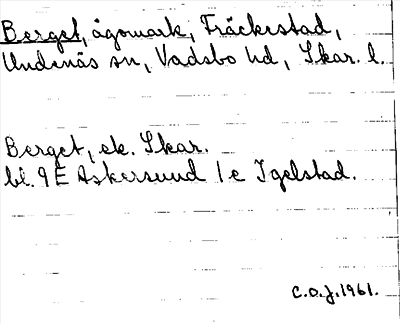 Berget, ägomark, Fräckestad,
Undenäs sn, Vadsbo hd, Skar. l.
Berget, ek. Skar.
bl. 9 E Askersund 1 e Igelstad.
C.O.J. 1961.